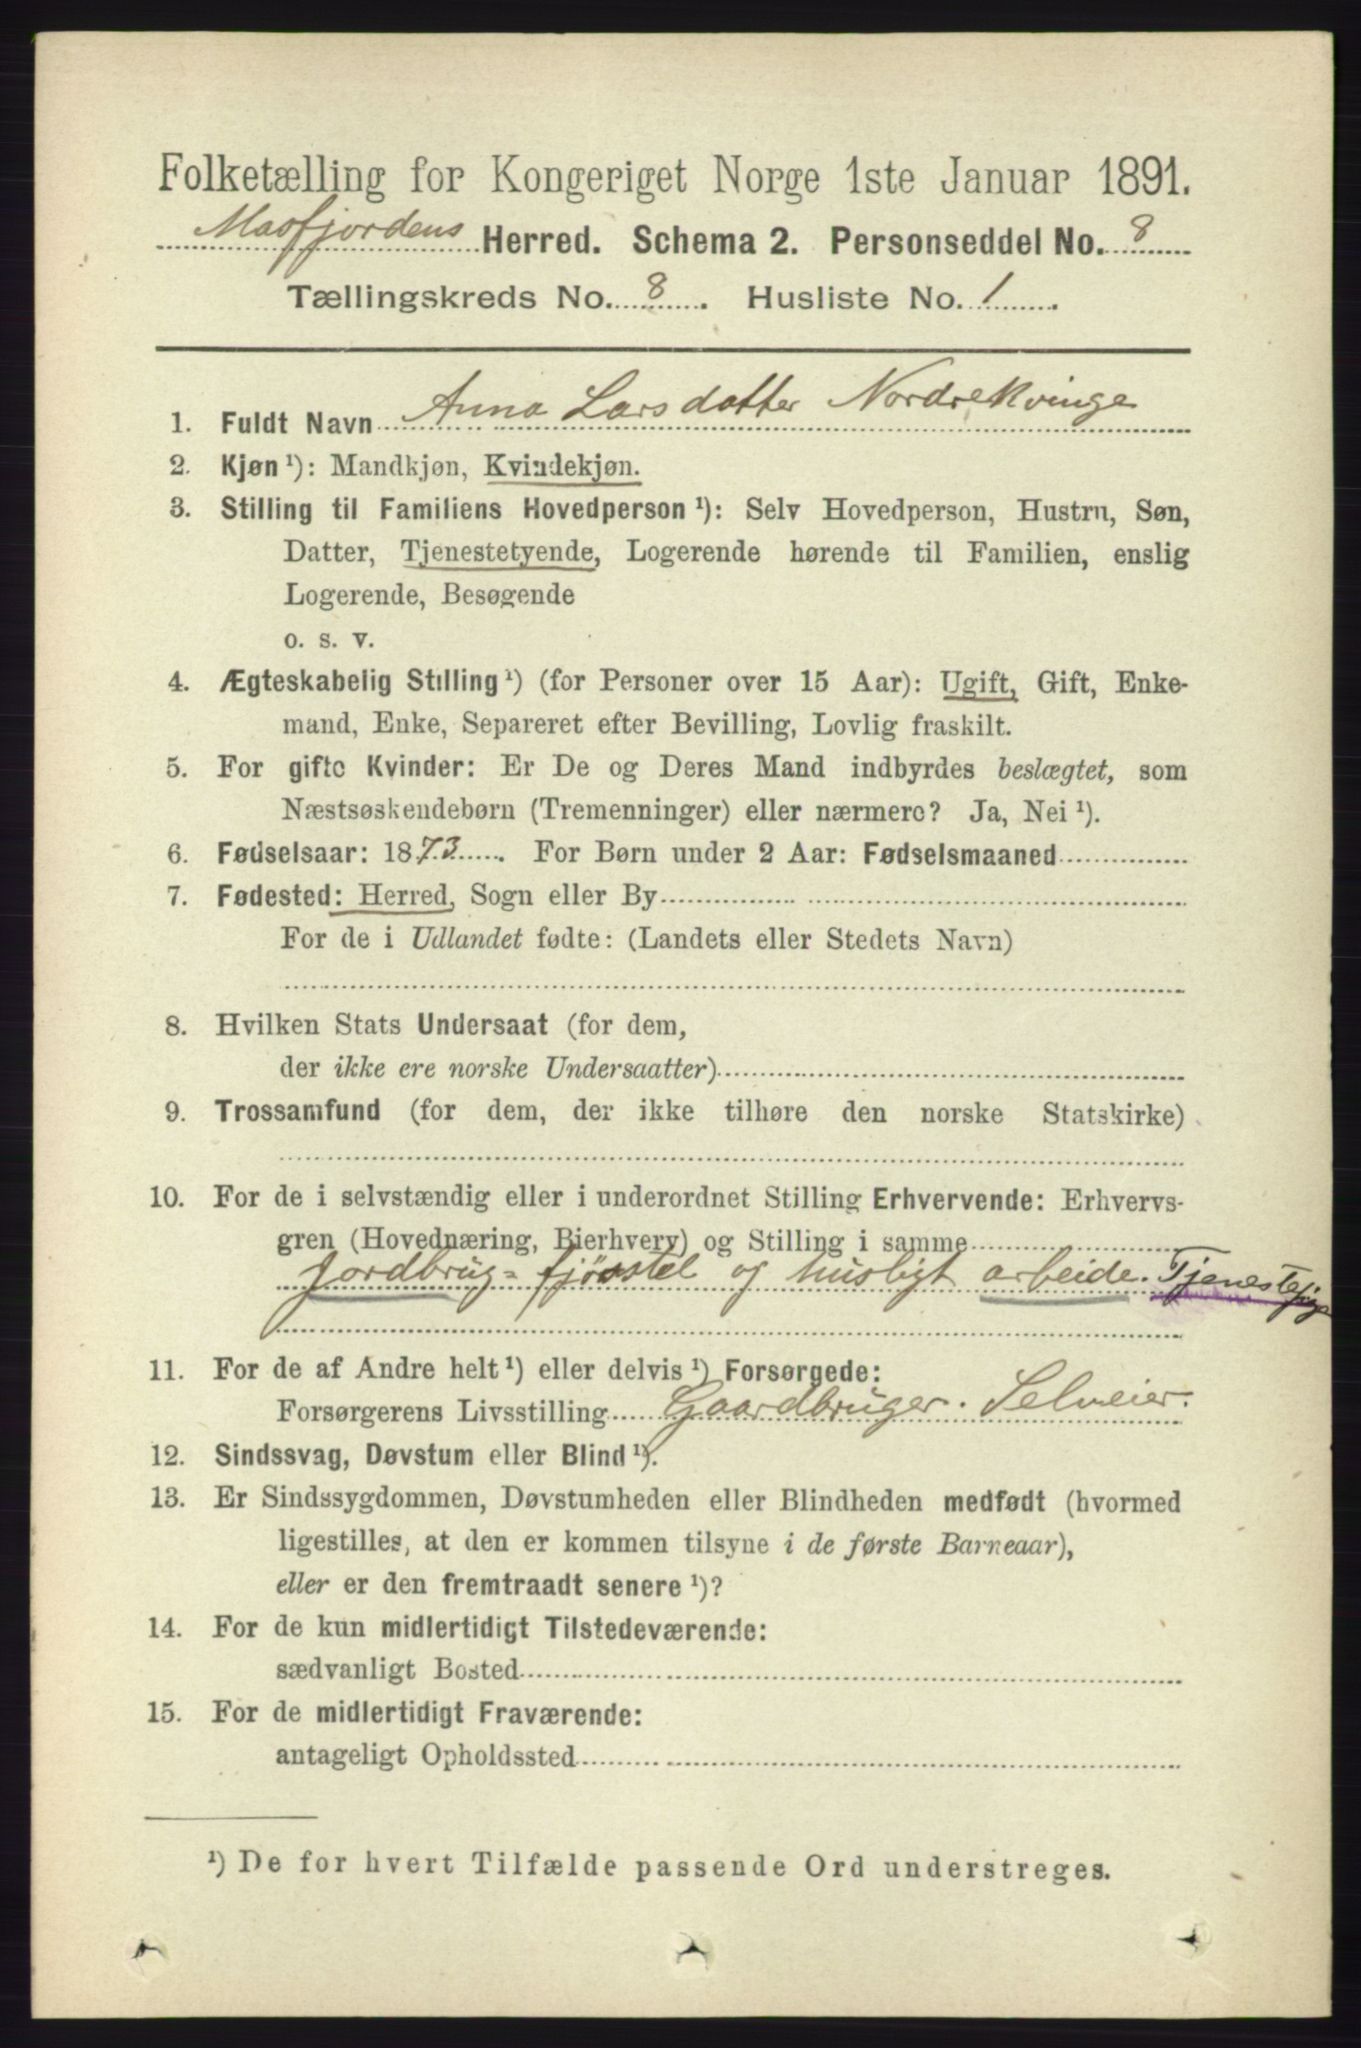 Folketælling for Kongeriget Norge 1ste Januar 1891.
Masfjordens Herred. Schema 2. Personseddel No. 8
Tællingskreds No. 8. Husliste No. 1.
1. Fuldt Navn Anna Larsdatter Nordrekvinge
2. Kjøn ¹): Mandkjøn, Kvindekjøn.
3. Stilling til Familiens Hovedperson ¹): Selv Hovedperson, Hustru, Søn,
Datter, Tjenestetyende, Logerende hørende til Familien, enslig
Logerende, Besøgende
o. s. v.
4. Ægteskabelig Stilling ¹) (for Personer over 15 Aar): Ugift, Gift, Enke-
mand, Enke, Separeret efter Bevilling, Lovlig fraskilt.
5. For gifte Kvinder: Er De og Deres Mand indbyrdes beslægtet, som
Næstsøskendebørn (Tremenninger) eller nærmere? Ja, Nei ¹).
6. Fødselsaar: 1873. For Børn under 2 Aar: Fødselsmaaned
7. Fødested: Herred, Sogn eller By
For de i Udlandet fødte: (Landets eller Stedets Navn)
8. Hvilken Stats Undersaat (for dem,
der ikke ere norske Undersaatter)
9. Trossamfund (for dem, der ikke tilhøre den norske Statskirke)
10. For de i selvstændig eller i underordnet Stilling Erhvervende: Erhvervs-
gren (Hovednæring, Bierhverv) og Stilling i samme
Jordbrug= fjøsstel og husligt arbeide. Tjenestepige
11. For de af Andre helt ¹) eller delvis ¹) Forsørgede:
Forsørgerens Livsstilling Gaardbruger. Selveier.
12. Sindssvag, Døvstum eller Blind ¹).
13. Er Sindssygdommen, Døvstumheden eller Blindheden medfødt (hvormed
ligestilles, at den er kommen tilsyne i de første Barneaar),
eller er den fremtraadt senere ¹)?
14. For de kun midlertidigt Tilstedeværende:
sædvanligt Bosted
15. For de midlertidigt Fraværende:
antageligt Opholdssted
¹) De for hvert Tilfælde passende Ord understreges.